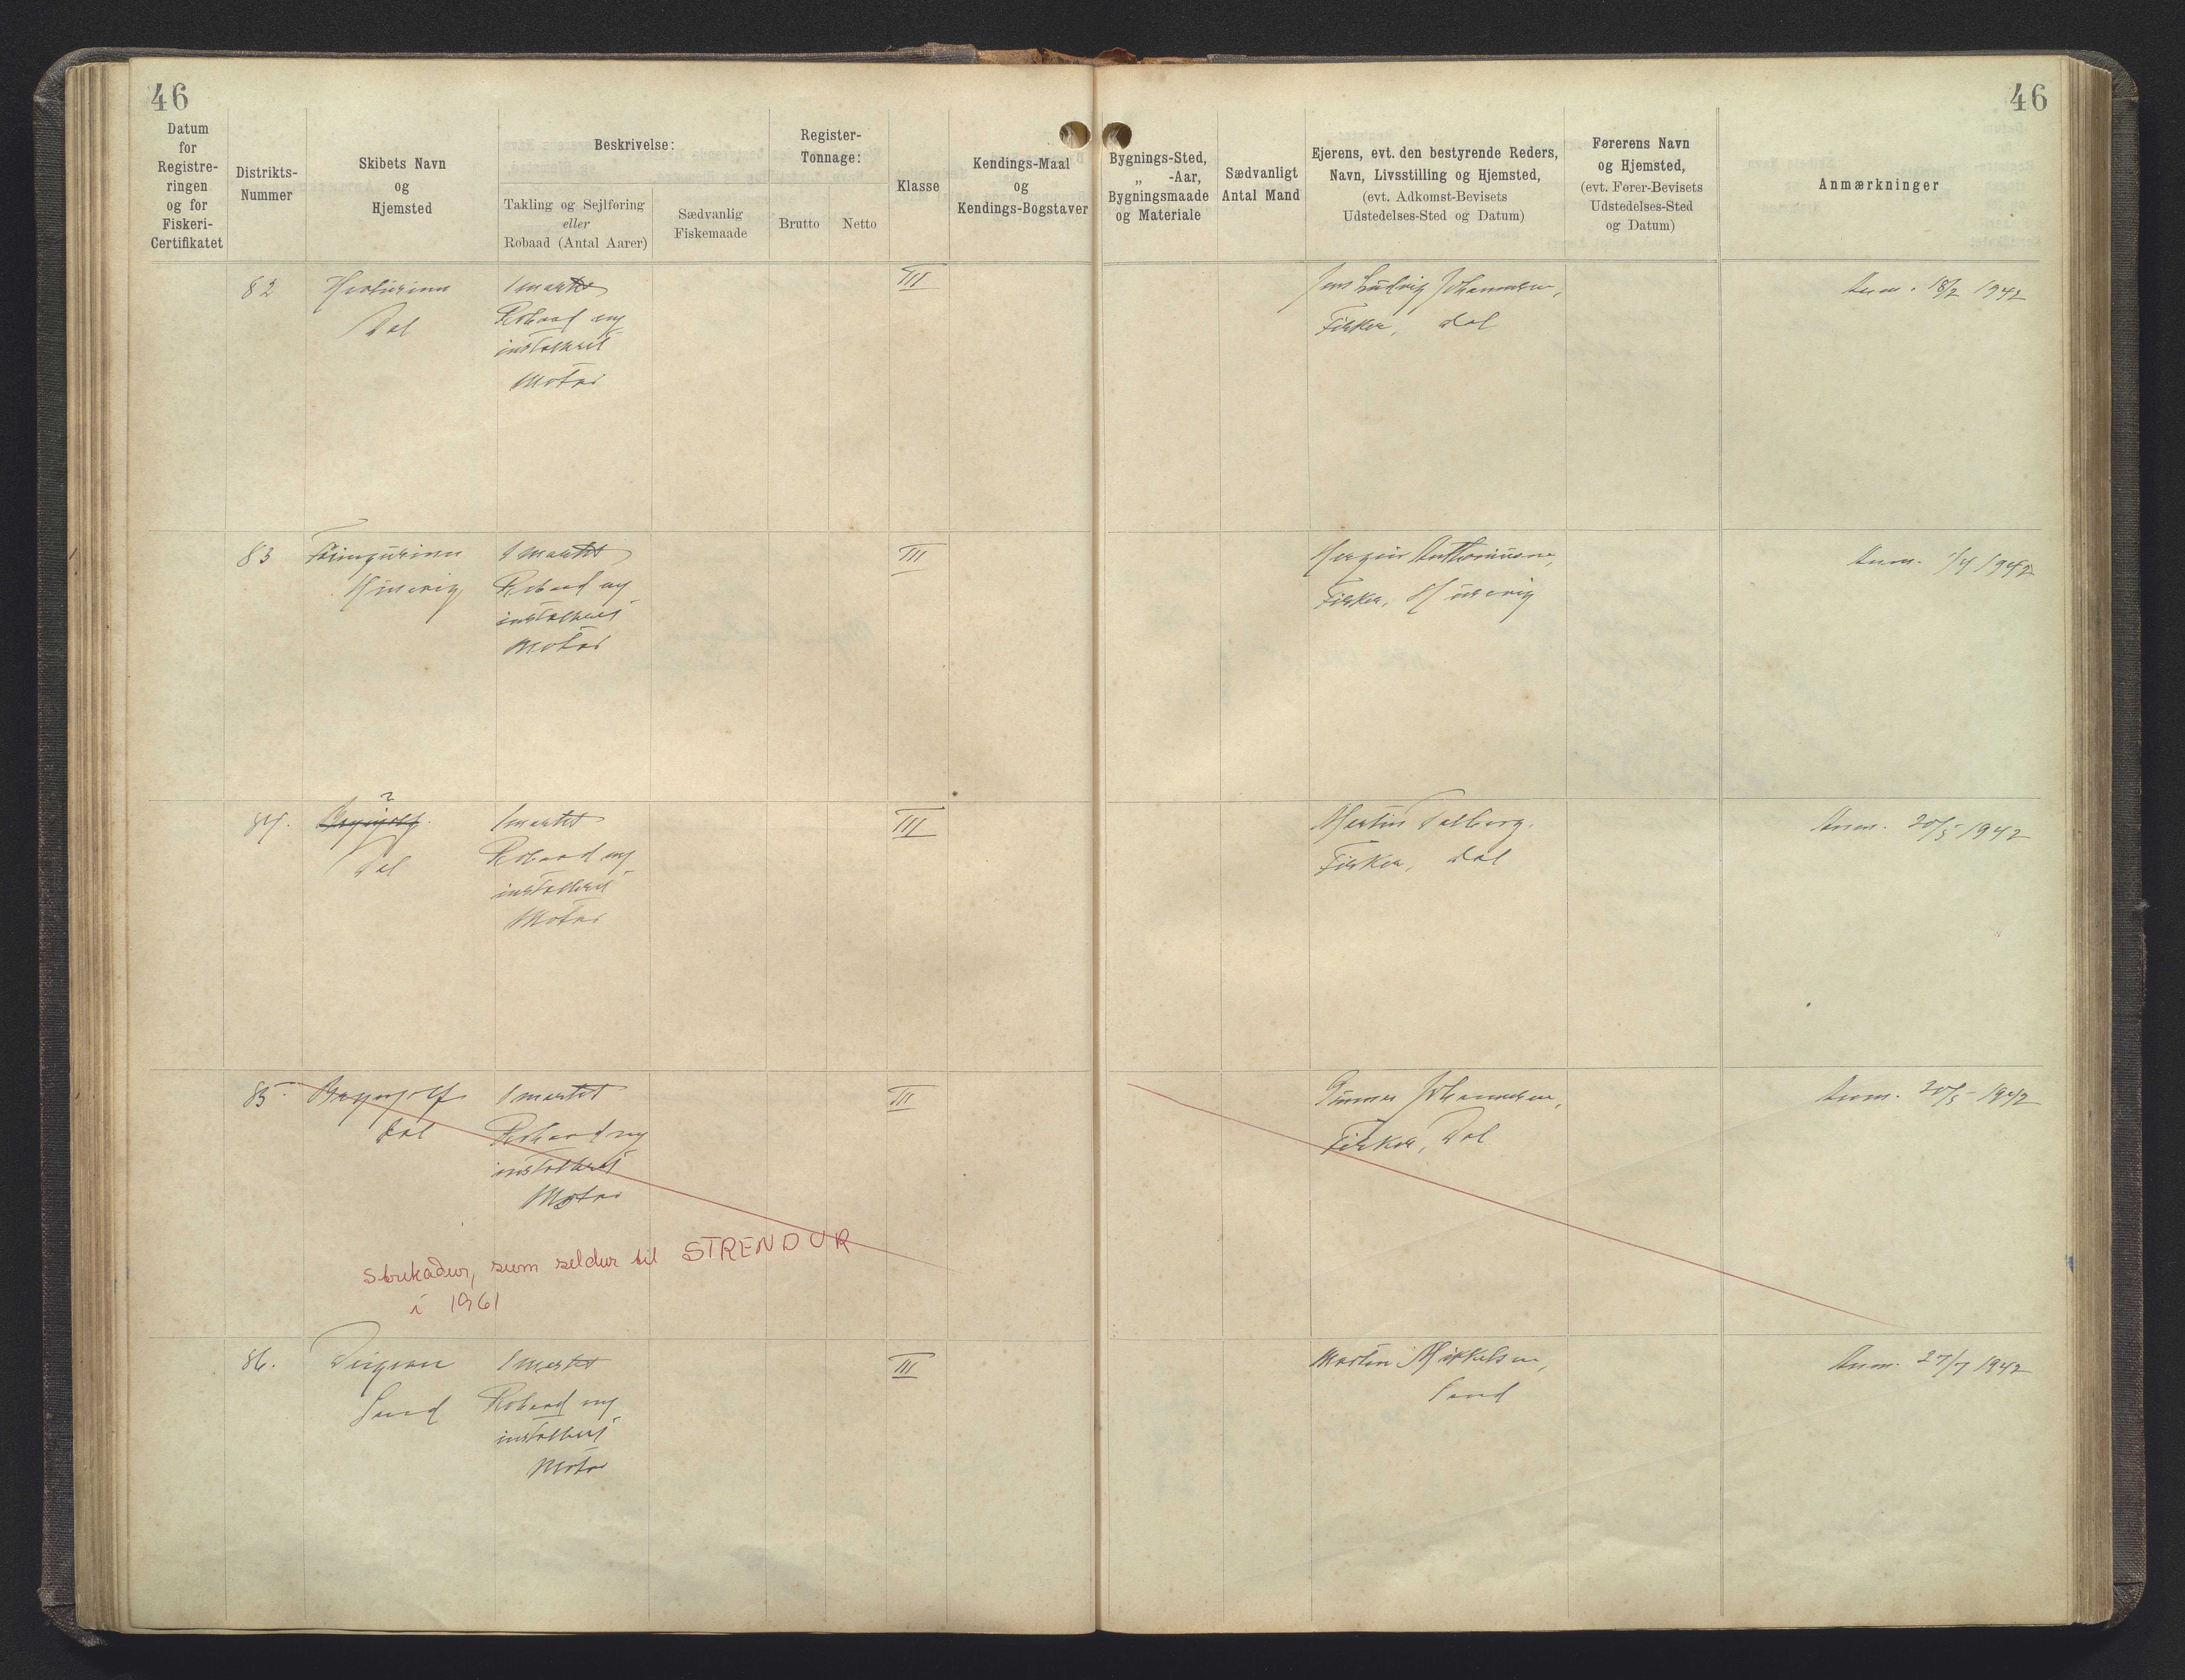 46
46
Datum
for
Registre-
ringen
og for
Fiskeri-
Certifikatet
Distrikts-
Nummer
Skibets Navn
og
Hjemsted
Beskrivelse:
Takling og Sejlføring
eller
Robaad (Antal Aarer)
Sædvanlig
Fiskemaade
Register-
Tonnage:
Brutto
Netto
Klasse
Kendings-Maal
og
Kendings-Bogstaver
Bygnings-Sted,
„ -Aar,
Bygningsmaade
og Materiale
Sædvanligt
Antal Mand
Ejerens, evt. den bestyrende Reders,
Navn, Livsstilling og Hjemsted,
(evt. Adkomst-Bevisets
Udstedelses-Sted og Datum)
Førerens Navn
og Hjemsted,
(evt. Fører-Bevisets
Udstedelses-Sted
og Datum)
Anmærkninger
82
Dal
1 mastet
Robaad m/
installeret
Motor
III
Jens Ludvig Johannesen,
Fisker, Dal
Anm. 18/2 1942
83
Húsavig
1 mastet
Robaad m/
installeret
Motor
III
Anthoniussen,
Fisker, Húsavig
Anm. 1/4 1942
84.
?
Dal
1 mastet
Robaad m/
installeret
Motor
III
Martin Dalberg.
Fisker, Dal
Anm. 20/5 1942
85.
Brynjolf
Dal
1 mastet
Robaad m/
installeret
Motor
III
Gunnar Johannesen,
Fisker, Dal
Anm. 20/5 1942
Strikaður, sum seldur til STRENDUR
i 1961
86.
Sand
1 mastet
Robaad m/
installeret
Motor
III
Martin Mikkelsen,
Sand
Anm. 27/7 1942